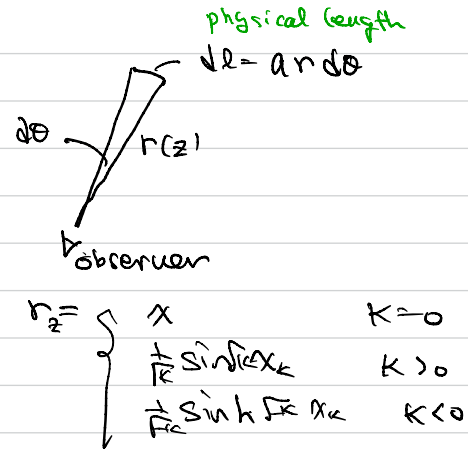 physical length
dl = a r dθ
dθ
r(z)
observer
r_z = { x K=0
1/√K sin√K x_K K>0
1/√K sinh √K x_K K<0